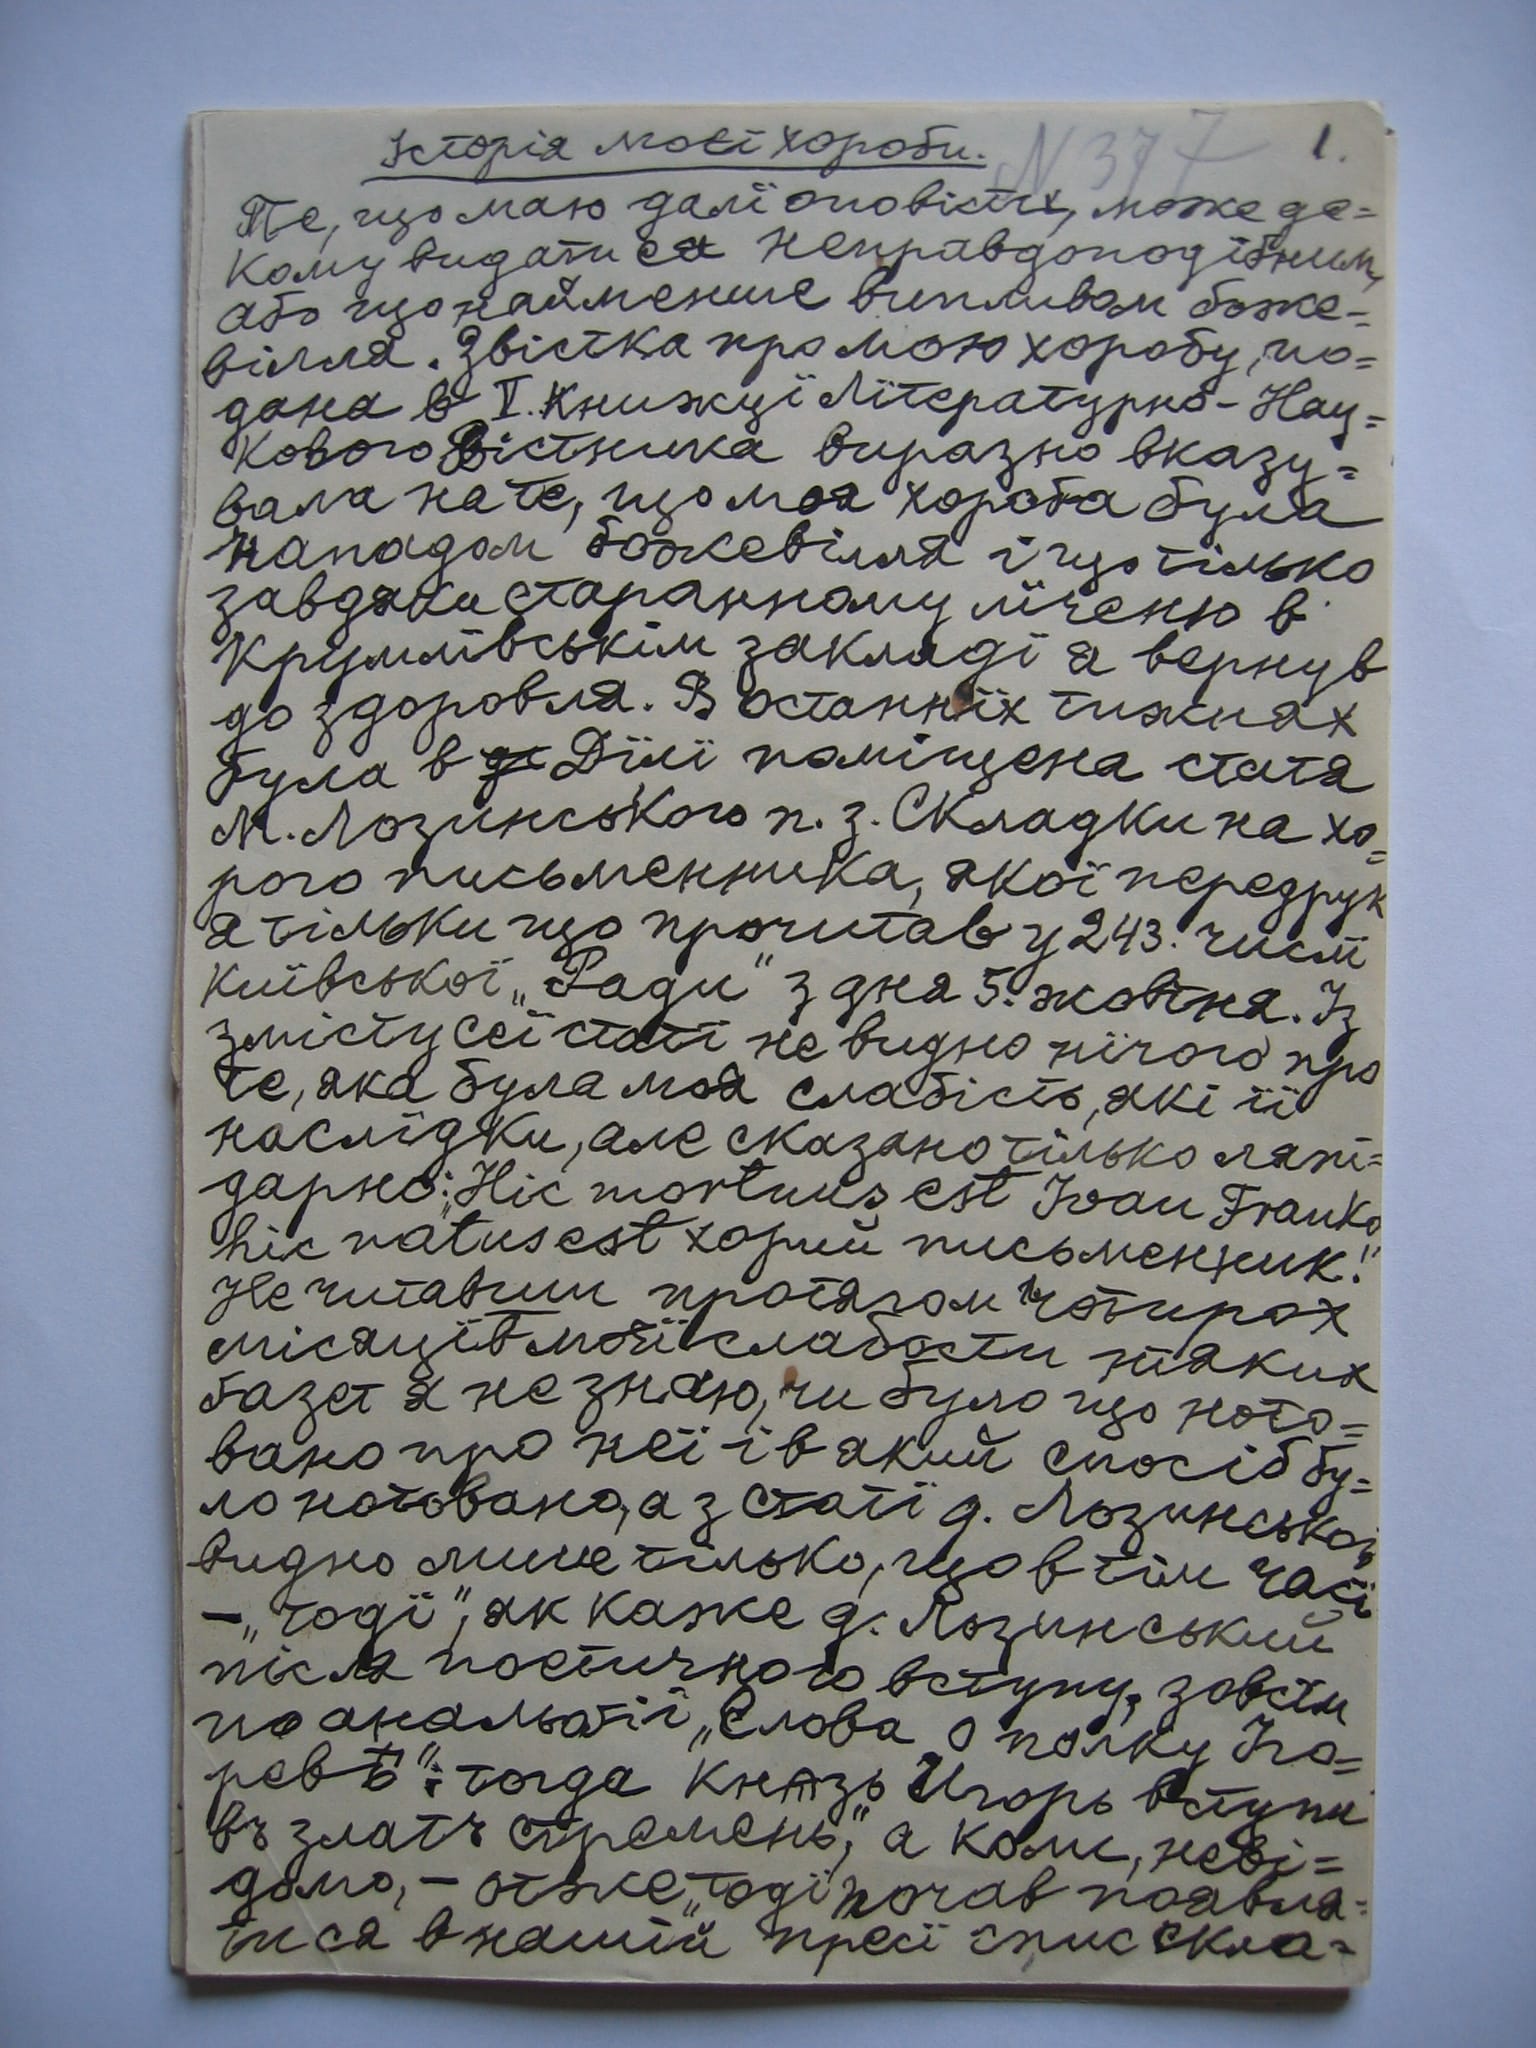 Історія моєї хороби.
N 377
1.
Те, що маю далї оповісти, може де=
кому видати ся неправдоподібним,
або що найменше випливом боже=
вілля. Звістка про мою хоробу, по=
дана в V. книжцї Лїтературно-Нау=
кового Вістника виразно вказу=
вала на те, що моя хороба була
нападом божевілля і що тілько
завдяки старанному лїченю в
Крульлївськім закладї я вернув
до здоровля. В останнїх тижнях
була в Дїлї помішена статя
М. Лозинського п. з. Складки на хо=
рого письменника, якої передрук
я тільки що прочитав у 243. числї
київської „Ради" з дня 5. жовтня. Із
змісту сеї статї не видно нїчого про
те, яка була моя слабість, які її
наслїдки, але сказано тілько ляпі=
дарно: „Hic mortuus est Ivan Franko
hic natus est хорий письменник!"
Не читавши протягом чотирох
місяцїв моєї слабости нїяких
ґазет я не знаю, чи було що ното=
вано про неї і в який спосіб бу=
ло нотовано, а з статї д. Лозинського
видно лише тілько, що в тім часї
– „тодї", як каже д. Лозинський
після поетичного вступу, зовсїм
по анальоґії „Слова о полку Іго=
ревѣ": тогда Князь Игорь вступи
въ златъ стремень," а коли, неві=
домо, – отже „тодї почав появля=
ти ся в нашій пресї спис скла=